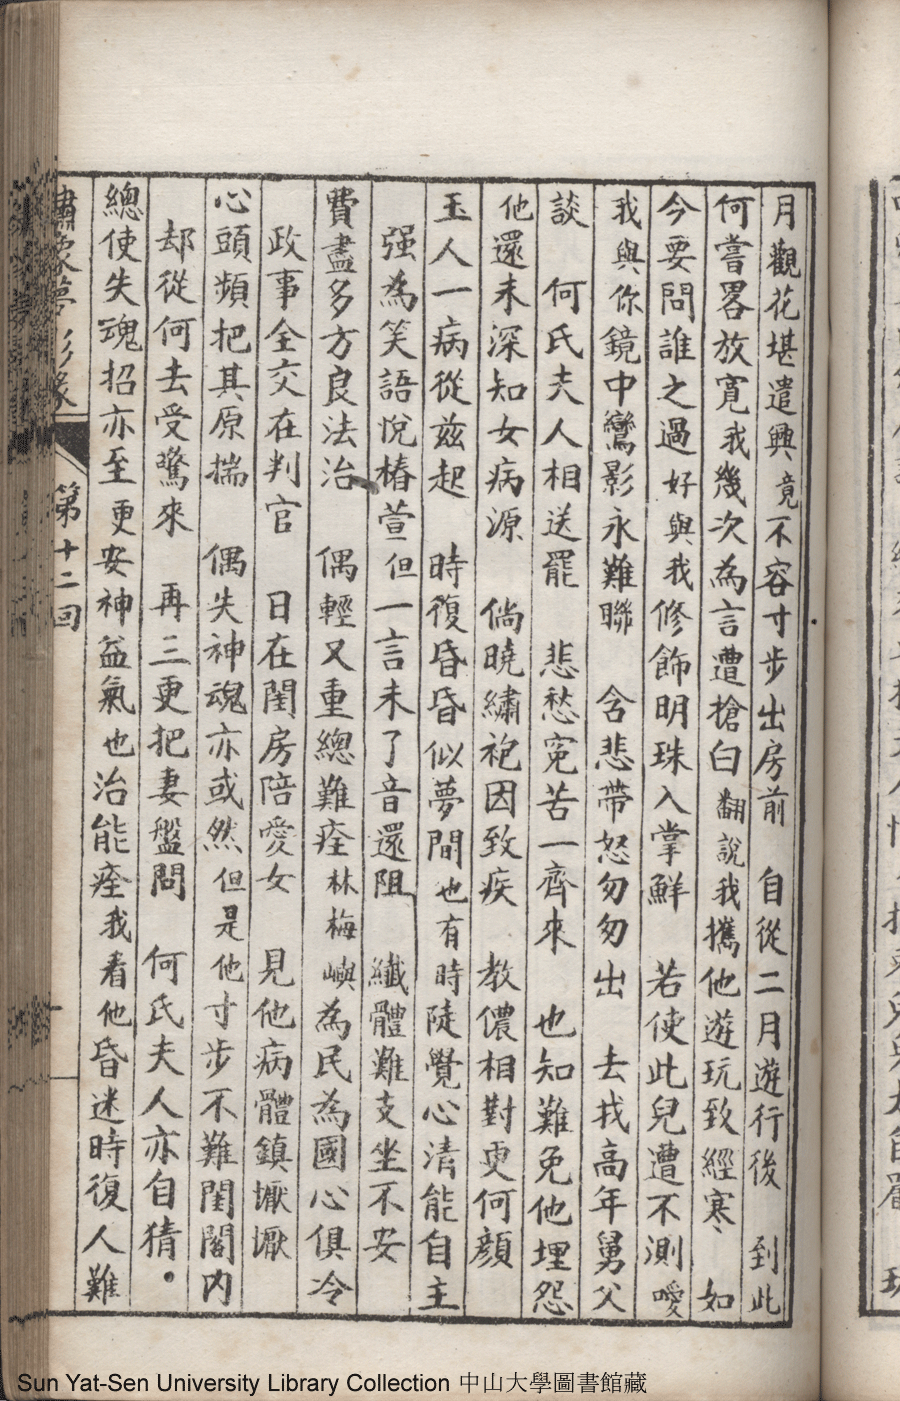 月觀花堪遣興竟不容寸步出房前　自從二月遊行後　到此
何嘗畧放寬我幾次為言遭搶白翻說我攜他遊玩致經寒　如
今要問誰之過好與我修飾明珠入掌鮮　若使此兒遭不測噯
我與你鏡中鸞影永難聯　含悲帶怒匆匆出　去找高年舅父
談　何氏夫人相送罷　悲愁寃苦一齊來　也知難免他埋怨
他還未深知女病源　倘曉繡袍因致疾　教儂相對更何顏
玉人一病從兹起　時復昏昏似夢間也有時陡覺心清能自主
强為笑語悅椿萱但一言未了音還阻　纖體難支坐不安
費盡多方良法治　偶輕又重總難痊林梅嶼為民為國心俱冷
政事全交在判官　日在閨房陪愛女　見他病體鎮懨懨
心頭頻把其原揣　偶失神魂亦或然但是他寸步不離閨閣內
却從何去受驚來　再三更把妻盤問　何氏夫人亦自猜。
總使失魂招亦至更安神益氣也治能痊我看他昏迷時復人難
繡像夢影緣
第十二回
Sun Yat-Sen University Library Collection 中山大學圖書館藏